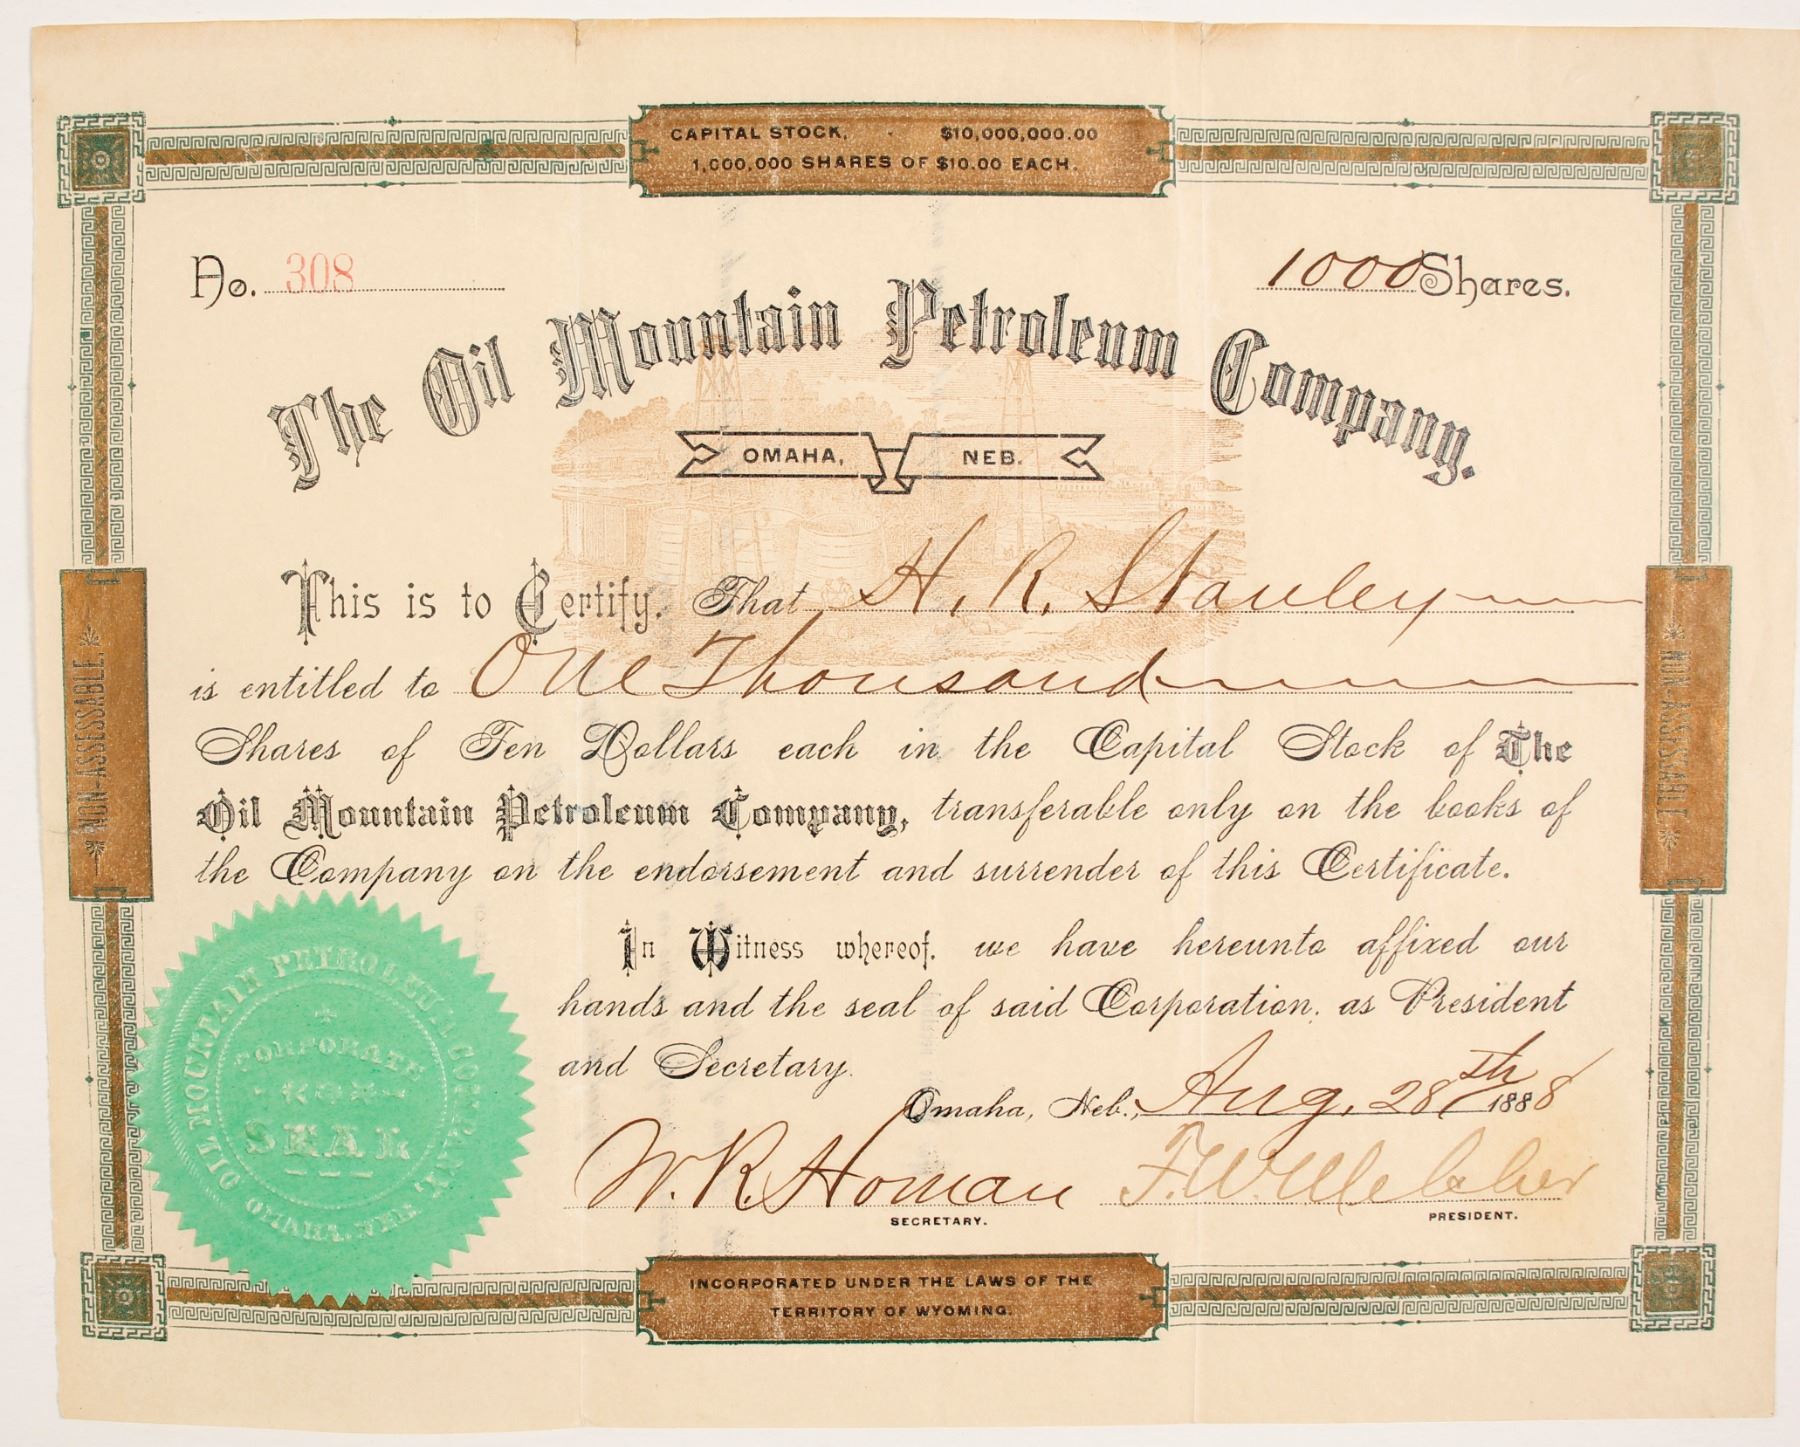 CAPITAL STOCK, $10,000,000.00
1,000,000 SHARES OF $10.00 EACH.
No. 308
1000 Shares.
The Oil Mountain Petroleum Company.
OMAHA, NEB.
This is to Certify. That H. R. Stanley
is entitled to One Thousand
Shares of Ten Dollars each in the Capital Stock of The
Oil Mountain Petroleum Company, transferable only on the books of
the Company on the endorsement and surrender of this Certificate.
In Witness whereof. we have hereunto affixed our
hands and the seal of said Corporation, as President
and Secretary.
Omaha, Neb., Aug. 28th 1888
W. R. Homan F. W. Melcher
SECRETARY. PRESIDENT.
NON-ASSESSABLE.
NON-ASSESSABLE
OIL MOUNTAIN PETROLEUM COMPANY.
CORPORATE
SEAL
OMAHA, NEB.
INCORPORATED UNDER THE LAWS OF THE
TERRITORY OF WYOMING.